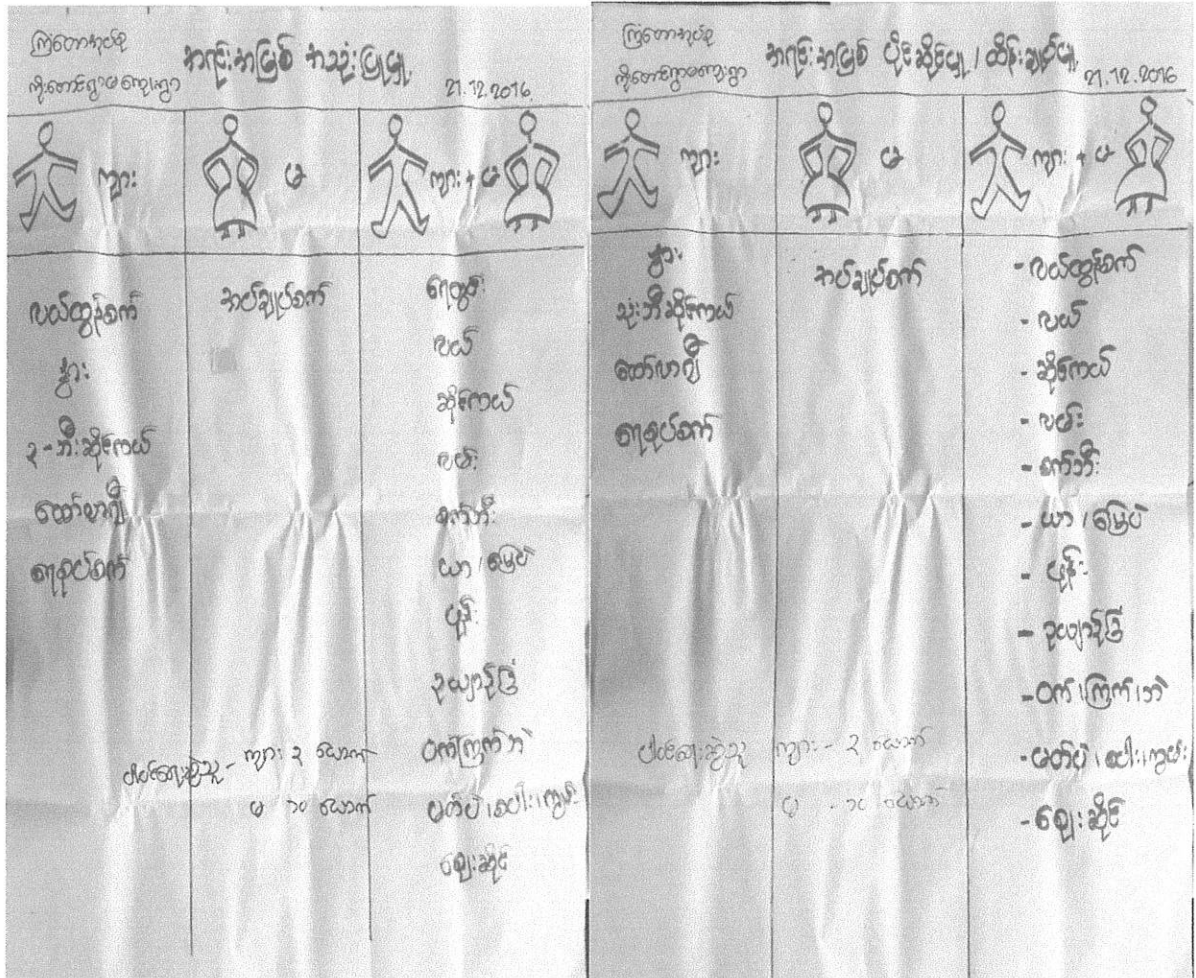 ကြံတောအုပ်စု
ကိုးတောင်ရွာမကျေးရွာ
အရင်းအမြစ် အသုံးပြုမှု
21.12.2016
ကျား
မ
ကျား + မ
လယ်ထွန်စက်
နွား
၃-ဘီးဆိုင်ကယ်
ထော်လာဂျီ
ရေစုပ်စက်
အပ်ချုပ်စက်
ရေတွင်း
လယ်
ဆိုင်ကယ်
လမ်း
စက်ဘီး
ယာ၊မြေပဲ
ပျိုး
ဥယျာဉ်ခြံ
ဝက်ကြက်ဘဲ
မတ်ပဲ၊ပေါ
ဈေးဆိုင်
ပါဝင်ဆွေးနွေးသူ - ကျား ၃ ယောက်
မ ၁၀ ယောက်
ကြံတောအုပ်စု
ကိုးတောင်ရွာမကျေးရွာ
အရင်းအမြစ် ပိုင်ဆိုင်မှု / ထိန်းချုပ်မှု
21.12.2016
ကျား
မ
ကျား + မ
နွား
သုံးဘီးဆိုင်ကယ်
ထော်လာဂျီ
ရေစုပ်စက်
အပ်ချုပ်စက်
- လယ်ထွန်စက်
- လယ်
- ဆိုင်ကယ်
- လမ်း
- စက်ဘီး
- ယာ၊မြေပဲ
- ပျိုး
- ဥယျာဉ်ခြံ
- ဝက်၊ကြက်၊ဘဲ
- မတ်ပဲ၊ပေါ
- ဈေးဆိုင်
ကျား - ၃ ယောက်
မ - ၁၀ ယောက်